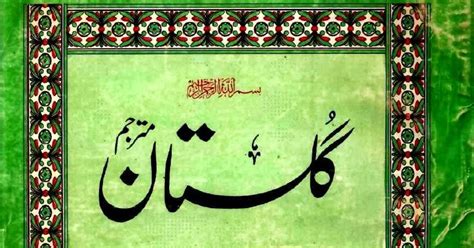 بسم اللہ الرحمن الرحیم
گلستان
مترجم